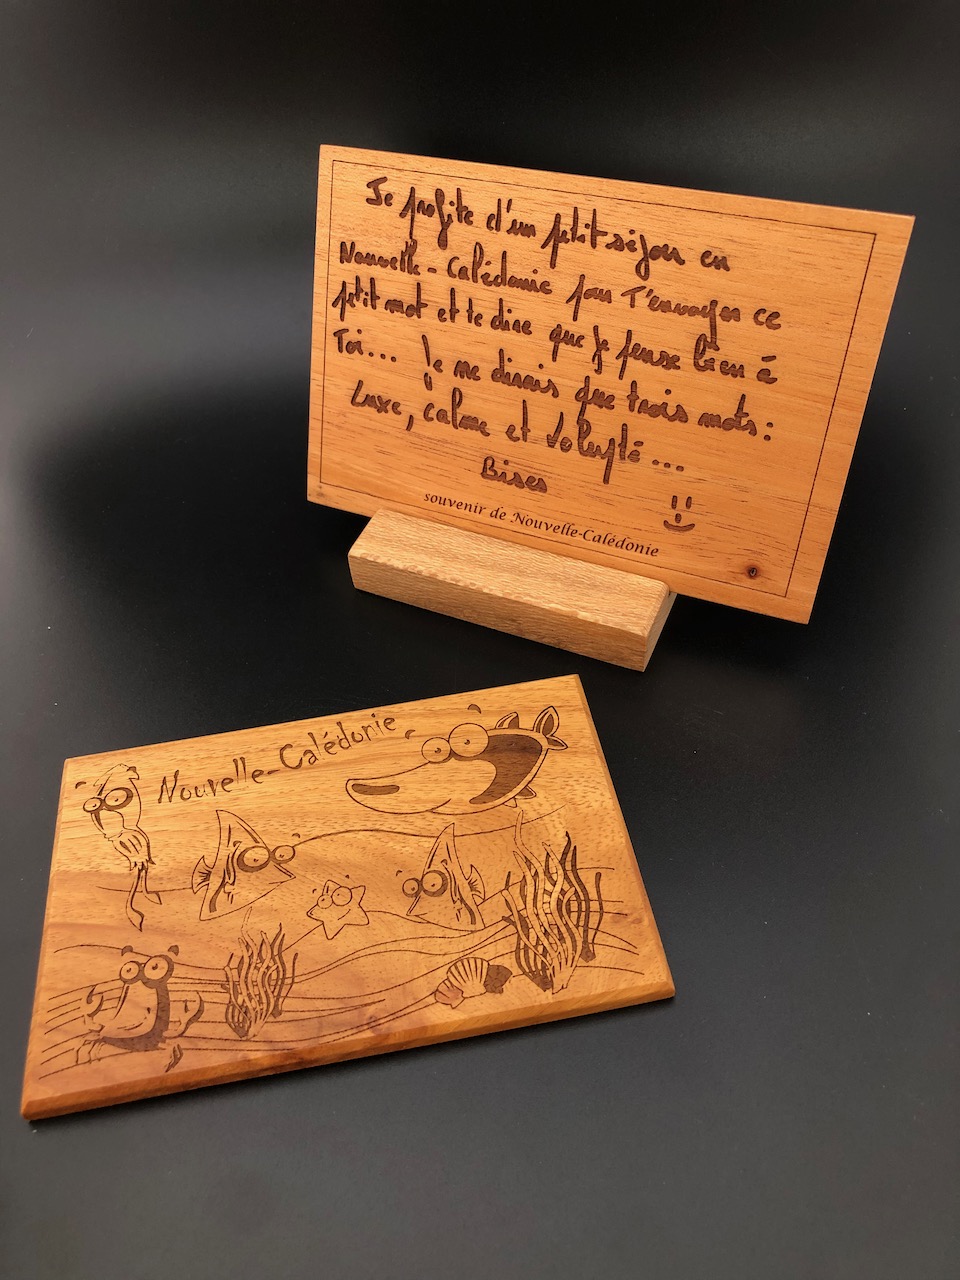 Je profite d'un petit séjour en
Nouvelle-Calédonie pour T'envoyer ce
petit mot et te dire que je pense bien à
Toi... Je ne dirais que trois mots:
"Luxe, calme et Volupté...
Bises
souvenir de Nouvelle-Calédonie
Nouvelle-Calédonie